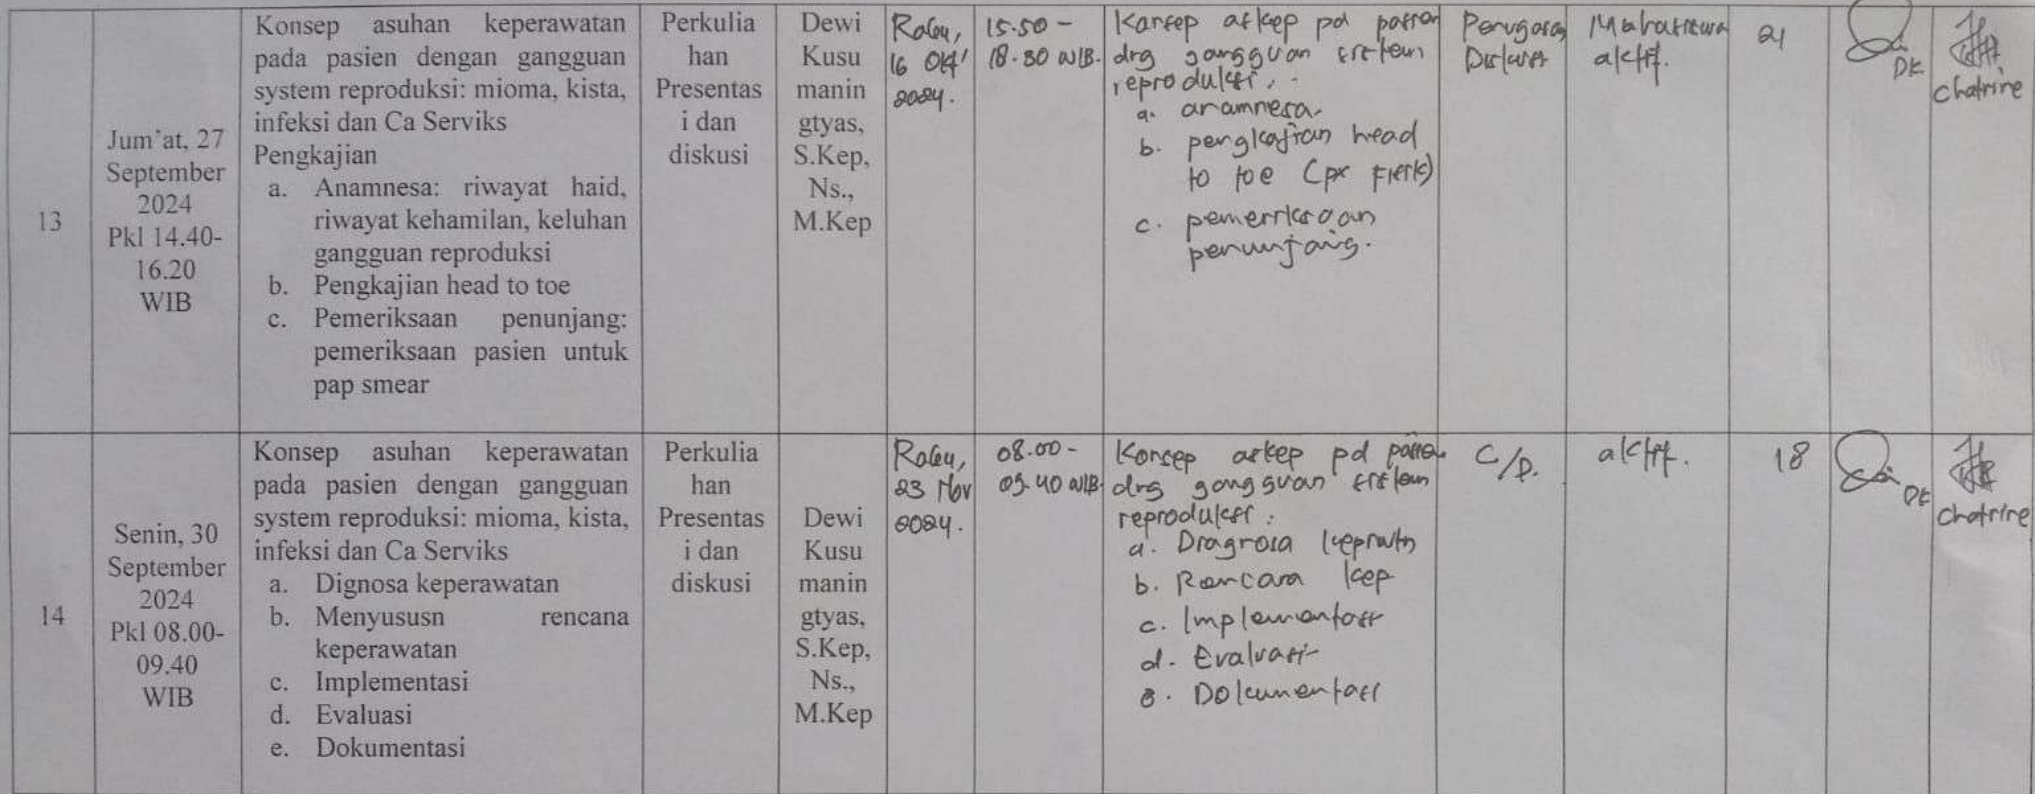 13
Jum'at, 27
September
2024
Pkl 14.40-
16.20
WIB
Konsep asuhan keperawatan
pada pasien dengan gangguan
system reproduksi: mioma, kista,
infeksi dan Ca Serviks
Pengkajian
a. Anamnesa: riwayat haid,
riwayat kehamilan, keluhan
gangguan reproduksi
b. Pengkajian head to toe
c. Pemeriksaan penunjang:
pemeriksaan pasien untuk
pap smear
Perkulia
han
Presentas
i dan
diskusi
Dewi
Kusu
manin
gtyas,
S.Kep,
Ns.,
M.Kep
Rabu,
16 Okt'
2024.
15.50 -
18.30 WIB.
Konsep askep pd pasien
dng gangguan sistem
reproduksi,
a. anamnesa
b. pengkajian head
to toe (px Fisik)
c. pemeriksaan
penunjang.
Penugasan
Diskusi
Mahasiswa
aktif.
21
DK
chatrine
14
Senin, 30
September
2024
Pkl 08.00-
09.40
WIB
Konsep asuhan keperawatan
pada pasien dengan gangguan
system reproduksi: mioma, kista,
infeksi dan Ca Serviks
a. Dignosa keperawatan
b. Menyususn rencana
keperawatan
c. Implementasi
d. Evaluasi
e. Dokumentasi
Perkulia
han
Presentas
i dan
diskusi
Dewi
Kusu
manin
gtyas,
S.Kep,
Ns.,
M.Kep
Rabu,
23 Nov
2024.
08.00 -
09.40 WIB
Konsep askep pd pasien
dng gangguan sistem
reproduksi:
a. Diagnosa
b. Rencana kep
c. Implementasi
d. Evaluasi
e. Dokumentasi
aktif.
18
DK
chatrine